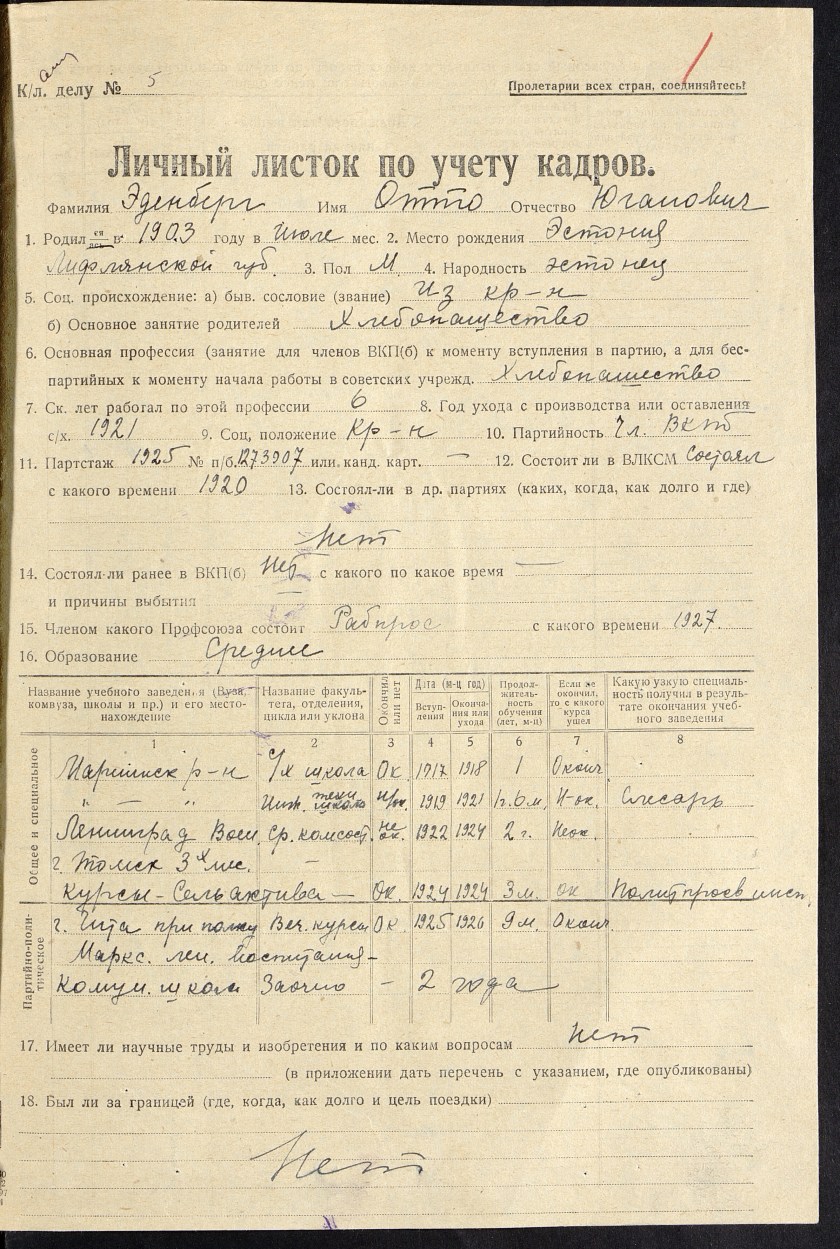 К/л. делу № 5
Пролетарии всех стран, соединяйтесь!
Личный листок по учету кадров.
Фамилия Эденберг Имя Отто Отчество Юганович
1. Родил ся лась в 1903 году в Июле мес. 2. Место рождения Эстония
Лифлянской губ. 3. Пол М. 4. Народность эстонец
5. Соц. происхождение: а) быв. сословие (звание) Из кр-н
б) Основное занятие родителей Хлебопашество
6. Основная профессия (занятие для членов ВКП(б) к моменту вступления в партию, а для бес-
партийных к моменту начала работы в советских учрежд. Хлебопашество
7. Ск. лет работал по этой профессии 6 8. Год ухода с производства или оставления
с/х. 1921 9. Соц. положение Кр-н 10. Партийность Чл. ВКПб
11. Партстаж 1925 № п/б. 1273907 или канд. карт. — 12. Состоит ли в ВЛКСМ Состоял
с какого времени 1920 13. Состоял-ли в др. партиях (каких, когда, как долго и где)
Нет
14. Состоял-ли ранее в ВКП(б) Нет с какого по какое время —
и причины выбытия —
15. Членом какого Профсоюза состоит Рабпрос с какого времени 1927.
16. Образование Среднее
Название учебного заведения (Вуза, комвуза, школы и пр.) и его место-нахождение Название факуль-тета, отделения, цикла или уклона Окончил или нет Дата (м-ц год) Вступ-ления Оконча-ния или ухода Продол-житель-ность обучения (лет, м-ц) Если не окончил, то с какого курса ушел Какую узкую специаль-ность получил в резуль-тате окончания учеб-ного заведения
1 2 3 4 5 6 7 8
Общее и специальное
Мариинск р-н с/х школа Ок. 1917 1918 1 Оконч.
" — " техн. школа н/ок. 1919 1921 1г. 6 м. Н-ок. Слесарь
Ленинград Воен. Ср. комсост. не ок. 1922 1924 2 г. Неок.
г. Томск 3х мес. —
Курсы - Сельактива — Ок. 1924 1924 3 м. ок Политпросв инсп.
Партийно-поли-тическое
г. Чита при полку Веч. курсы Ок. 1925 1926 9 м. Оконч.
Маркс. лен. воспитания -
Комун. школа Заочно - 2 года
17. Имеет ли научные труды и изобретения и по каким вопросам Нет
(в приложении дать перечень с указанием, где опубликованы)
18. Был ли за границей (где, когда, как долго и цель поездки)
Нет